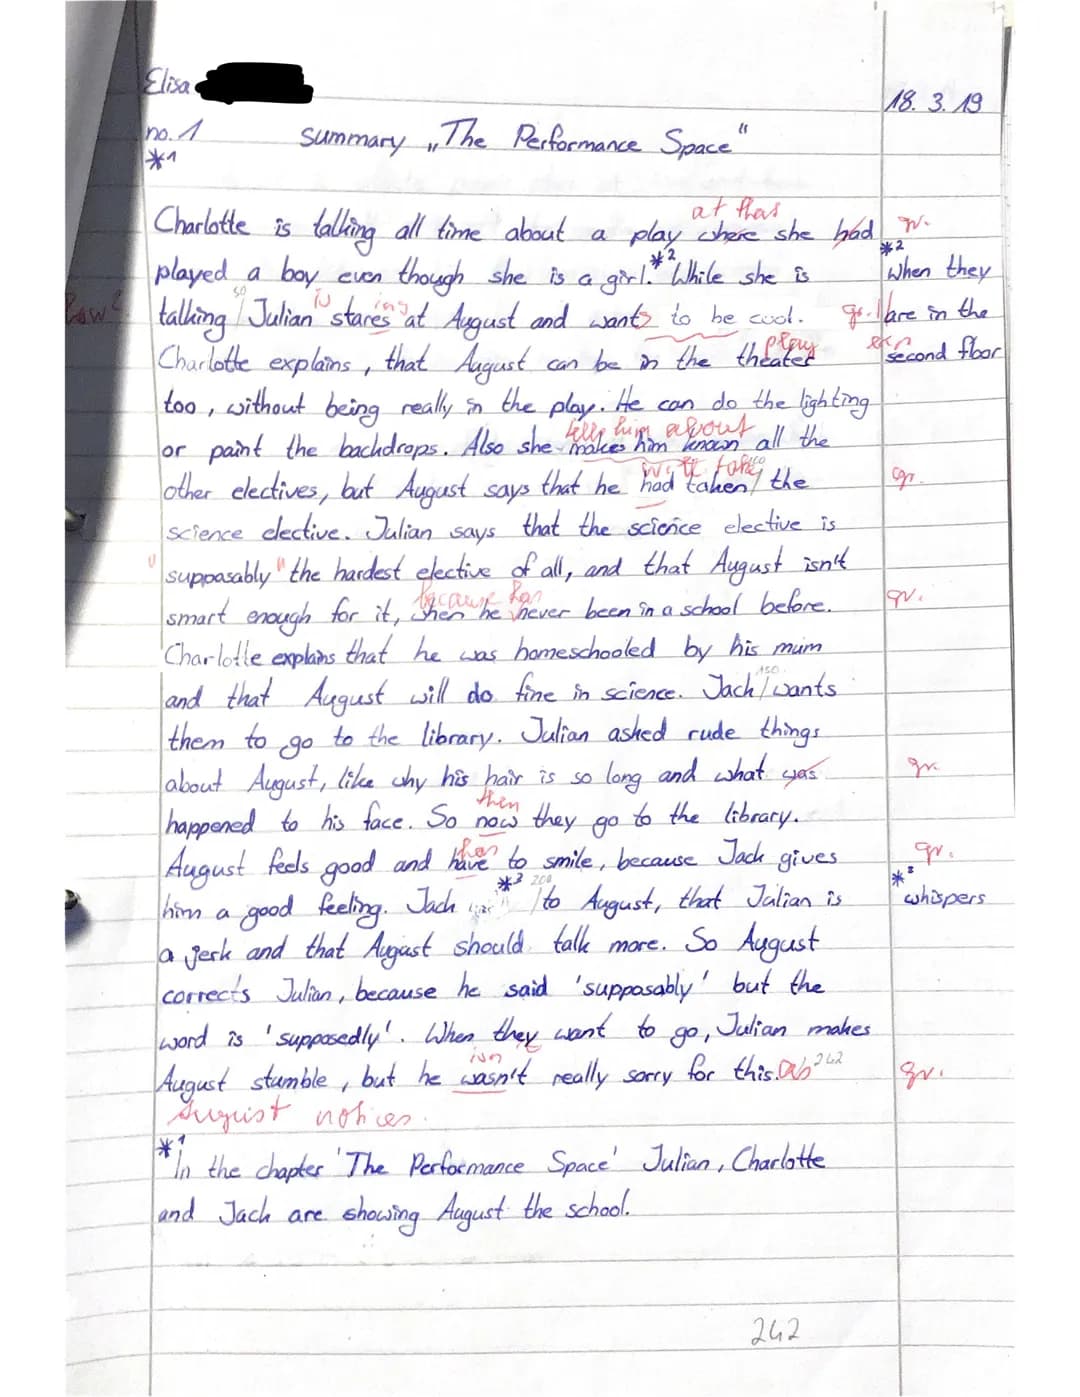 Elisa
18. 3. 19
no. 1 summary „The Performance Space"
*1
at that
Charlotte is talking all time about a play where she had gr.
*2
played a boy even though she is a girl.*2 While she is When they
50
is ing
talking / Julian stares at August and wants to be cool. gr. are in the
play
Charlotte explains, that August can be in the theater second floor
too, without being really in the play. He can do the lighting
tells him about
or paint the backdrops. Also she makes him known all the
will take 100
other electives, but August says that he had taken / the gr.
science elective. Julian says that the science elective is
"supposably" the hardest elective of all, and that August isn't
because has
smart enough for it, when he never been in a school before. gr.
Charlotte explains that he was homeschooled by his mum
150
and that August will do fine in science. Jack / wants
them to go to the library. Julian asked rude things
about August, like why his hair is so long and what was gr.
then
happened to his face. So now they go to the library.
has
August feels good and have to smile, because Jack gives gr.
*3 200 *3
him a good feeling. Jack / to August, that Julian is whispers
a jerk and that August should talk more. So August
corrects Julian, because he said 'supposably' but the
word is 'supposedly'. When they want to go, Julian makes
isn
August stumble, but he wasn't really sorry for this. as 242 gr.
August notices.
*1
In the chapter 'The Performance Space' Julian, Charlotte
and Jack are showing August the school.
242